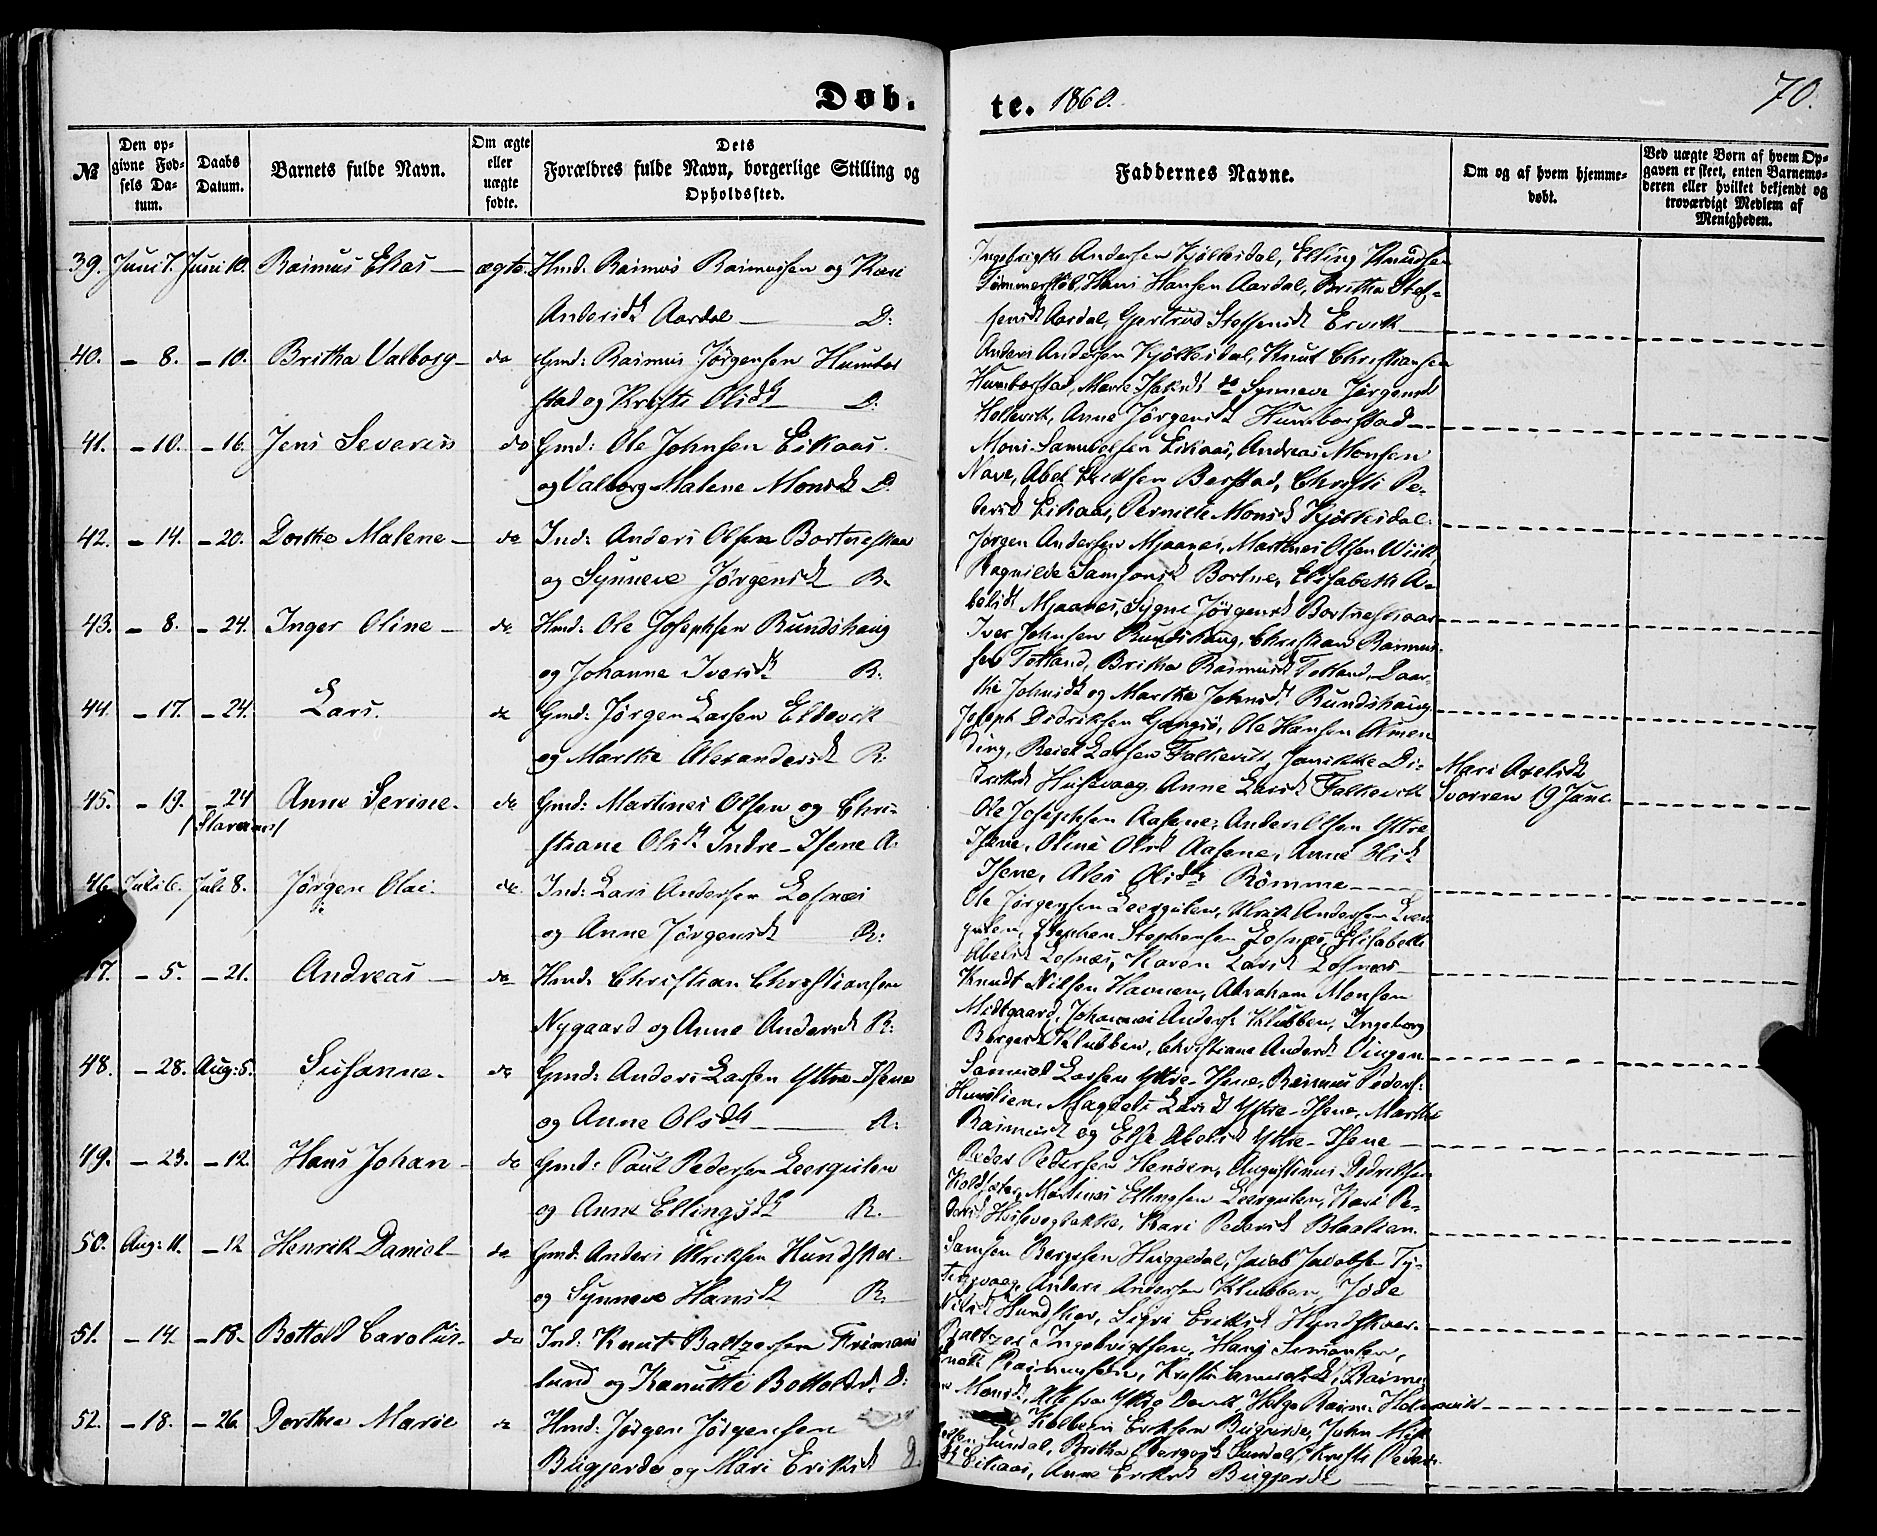 Døb. te. 1860. 70.
№
Den opgivne Fødsels Datum.
Daabs Datum.
Barnets fulde Navn.
Om ægte eller uægte fødte.
Dets Forældres fulde Navn, borgerlige Stilling og Opholdssted.
Faddernes Navne.
Om og af hvem hjemmedøbt.
Ved uægte Børn af hvem Opgaven er skeet, enten Barnemoderen eller hvilket bekjendt og troværdigt Medlem af Menigheden.
39. Juni 7. Juni 10. Rasmus Elias ægte. Hmd: Rasmus Rasmussen og Kari
Andersdt Aardal D:
Ingebrigt Andersen Kjöllesdal, Elling Knudsen
Tömmerstöl, Hans Hansen Aardal, Britha Stef-
fensdt Aardal, Gjertrud Steffensdt Ervik
40. - 8. - 10. Britha Valborg do Gmd: Rasmus Jörgensen Humbor
stad og Kristi Olsdt D.
Anders Andersen Kjöllesdal, Knut Christiansen
Humborstad, Marte Isaksdt do Synneve Jörgensdt
Hellevik, Anne Jörgensdt Humborstad
41. - 10. - 16. Jens Severin do Gmd: Ole Johnsen Eikaas
og Valborg Malene Monsdt D.
Mons Samuelsen Eikaas, Andreas Monsen
Nave, Abel Eriksen Berstad, Christi Pe-
dersdt Eikaas, Pernille Monsdt Kjöllesdal.
42. - 14. - 20. Dorthe Malene do Ind: Anders Olsen Bortneskar
og Synneve Jörgensdt B.
Jörgen Andersen Mjaanes, Martinus Olsen Wiik,
Ragnilde Samsonsdt Bortne, Elisabeth A-
belsdt Mjaanes, Sygne Jörgensdt Bortneskaar
43. - 8. - 24. Inger Oline do. Hmd: Ole Josephsen Rundshaug
og Johanne Iversdt R.
Iver Johnsen Rundshaug, Christian Rasmus-
sen Totland, Britha Rasmusdt Totland, Daar-
the Johnsdt og Marthe Johnsdt Rundshaug
44. - 17. - 24. Lars. do Gmd: Jörgen Larsen Eldevik
og Marthe Alexandersdt R:
Joseph Didriksen Gangsö, Ole Hansen
Larsen Falkevik, Janikke Di-
driksdt Husevaag, Anne Larsdt Falkevik
45. - 19. - 24 (Stavanger) Anne Serine. do Gmd: Martines Olsen og Chri-
stiane Olsdt Indre-Isene A.
Ole Josephsen Aasene, Anders Olsen Yttre
Isene, Oline Olsdt Aasene, Anne Olsdt
Isene, Olsdt Römme
Mari Axelsdt
Svorren 19 Juni
46. Juli 6. Juli 8. Jörgen Olai. do. Ind: Lars Andersen Lofnæs
og Anne Jörgensdt R:
Ole Jörgensen Leergulen, Ulrik Andersen Leer-
gulen, Stephen Stephensen Lofnæs, Elisabeth
Abelsdt Lofnæs, Karen Larsdt Lofnæs
47. - 5. - 21. Andreas do Hmd: Christian Christiansen
Nygaard og Anne Andersdt R:
Knudt Nilsen Havnen, Abraham Monsen
Midtgaard, Johannes Anders: Klubben, Ingeborg
Bergersdt Klubben, Christiane Andersdt Vingen
48. - 28. Aug: 5. Susanne. do Gmd: Anders Larsen Yttre-Isene
og Anne Olsdt A:
Samuel Larsen Yttre-Isene, Rasmus Peders:
Magdeli Larsdt Yttre-Isene, Marthe
Rasmusdt og Else Abelsdt Yttre-Isene
49. - 23. - 12. Hans Johan do Gmd: Paul Pedersen Leergulen
og Anne Ellingsdt R.
Peder Pedersen Henöen, Augustinus Didriksen
Martinus Ellingsen Leergulen, Kari Pe-
dersdt Husevogbakke, Kari Pedersdt Blaalien
50. Aug: 11. - 12 Henrik Daniel do Gmd: Anders Ulriksen Hundskar
og Synneve Hansdt R:
Samson Bergesen Huggedal, Jacob Jacobsen Ty-
tingvaag, Anders Andersen Klubben, Jöde
Nilsdt Hundskar, Sigri Eriksdt Hundskaar
51. - 14. - 18. Bottold Carolus do Ind: Knut Baltzersen Frimans
lund og Kanutte Bottolvsd. D:
Baltzer Ingebrigtsen, Hans Simonsen,
Rasmussen,
52. - 18. - 26. Dorthea Marie do Hmd: Jörgen Jörgensen
Bugjerde og Mari Eriksdt D.
Kolbein Eriksen Bugjerde, John
Sundal, Britha Sundal, Kristi Peders
Eikaas, Anne Eriksdt Bugjerde